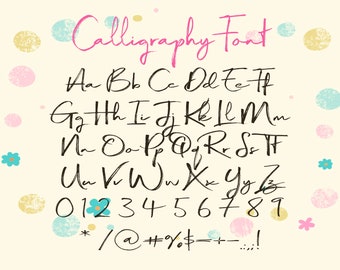 Calligraphy Font
Aa Bb Cc Dd Ee Ff
Gg Hh Ii Jj Kk Ll Mm
Nn Oo Pp Qq Rr Ss Tt
Uu Vv Ww Xx Yy Zz
0 1 2 3 4 5 6 7 8 9
* / @ # % $ — + - . : , !